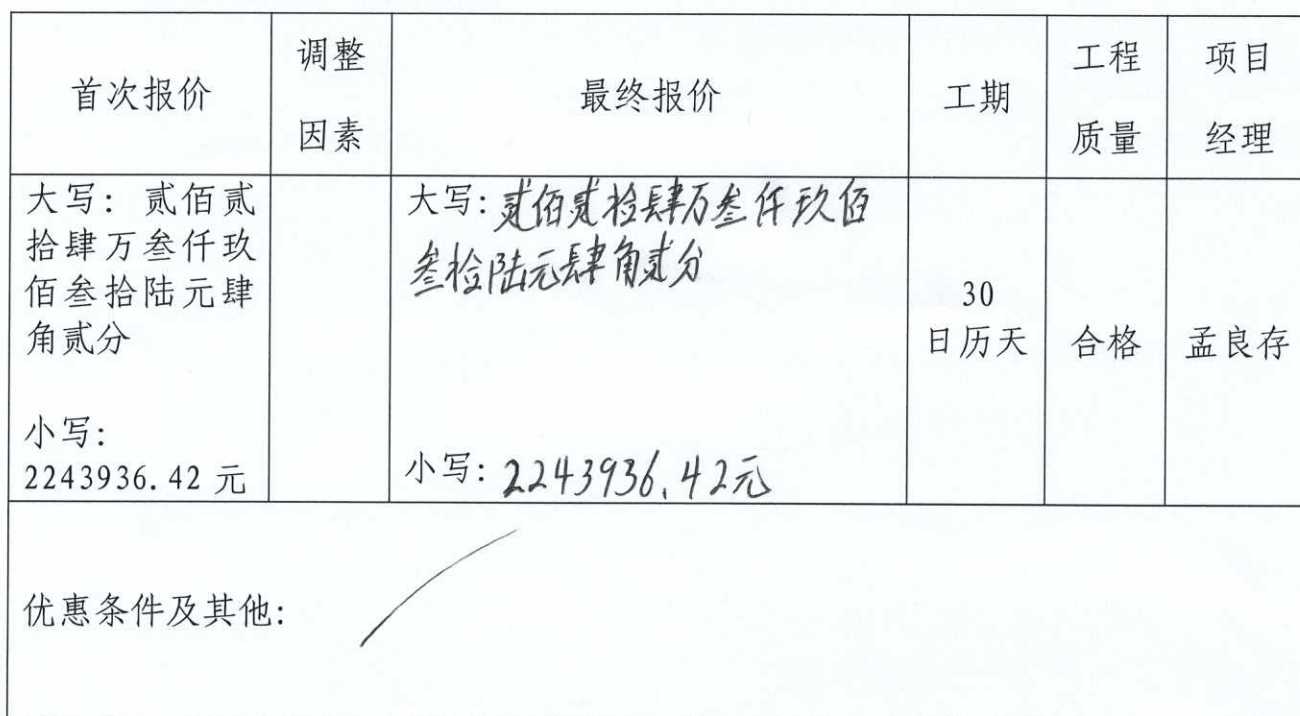 首次报价
调整
因素
最终报价
工期
工程
质量
项目
经理
大写：贰佰贰
拾肆万叁仟玖
佰叁拾陆元肆
角贰分
小写：
2243936.42 元
大写：贰佰贰拾肆万叁仟玖佰
叁拾陆元肆角贰分
小写：2243936.42元
30
日历天
合格
孟良存
优惠条件及其他：